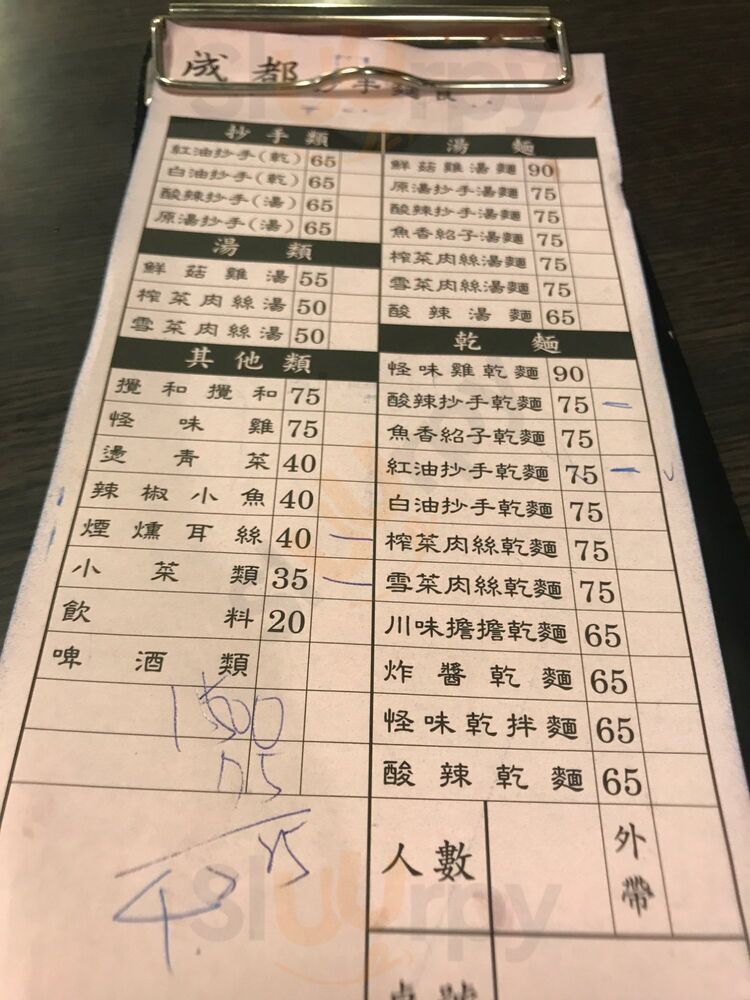 成都抄手麵食
抄手類
紅油抄手(乾) 65
白油抄手(乾) 65
酸辣抄手(湯) 65
原湯抄手(湯) 65
湯類
鮮菇雞湯 55
榨菜肉絲湯 50
雪菜肉絲湯 50
其他類
攪和攪和 75
怪味雞 75
燙青菜 40
辣椒小魚 40
煙燻耳絲 40 一
小菜類 35 一
飲料 20
啤酒類
湯麵
鮮菇雞湯麵 90
原湯抄手湯麵 75
酸辣抄手湯麵 75
魚香紹子湯麵 75
榨菜肉絲湯麵 75
雪菜肉絲湯麵 75
酸辣湯麵 65
乾麵
怪味雞乾麵 90
酸辣抄手乾麵 75 一
魚香紹子乾麵 75
紅油抄手乾麵 75 一
白油抄手乾麵 75
榨菜肉絲乾麵 75
雪菜肉絲乾麵 75
川味擔擔乾麵 65
炸醬乾麵 65
怪味乾拌麵 65
酸辣乾麵 65
人數
外帶
桌號
Sluurpy